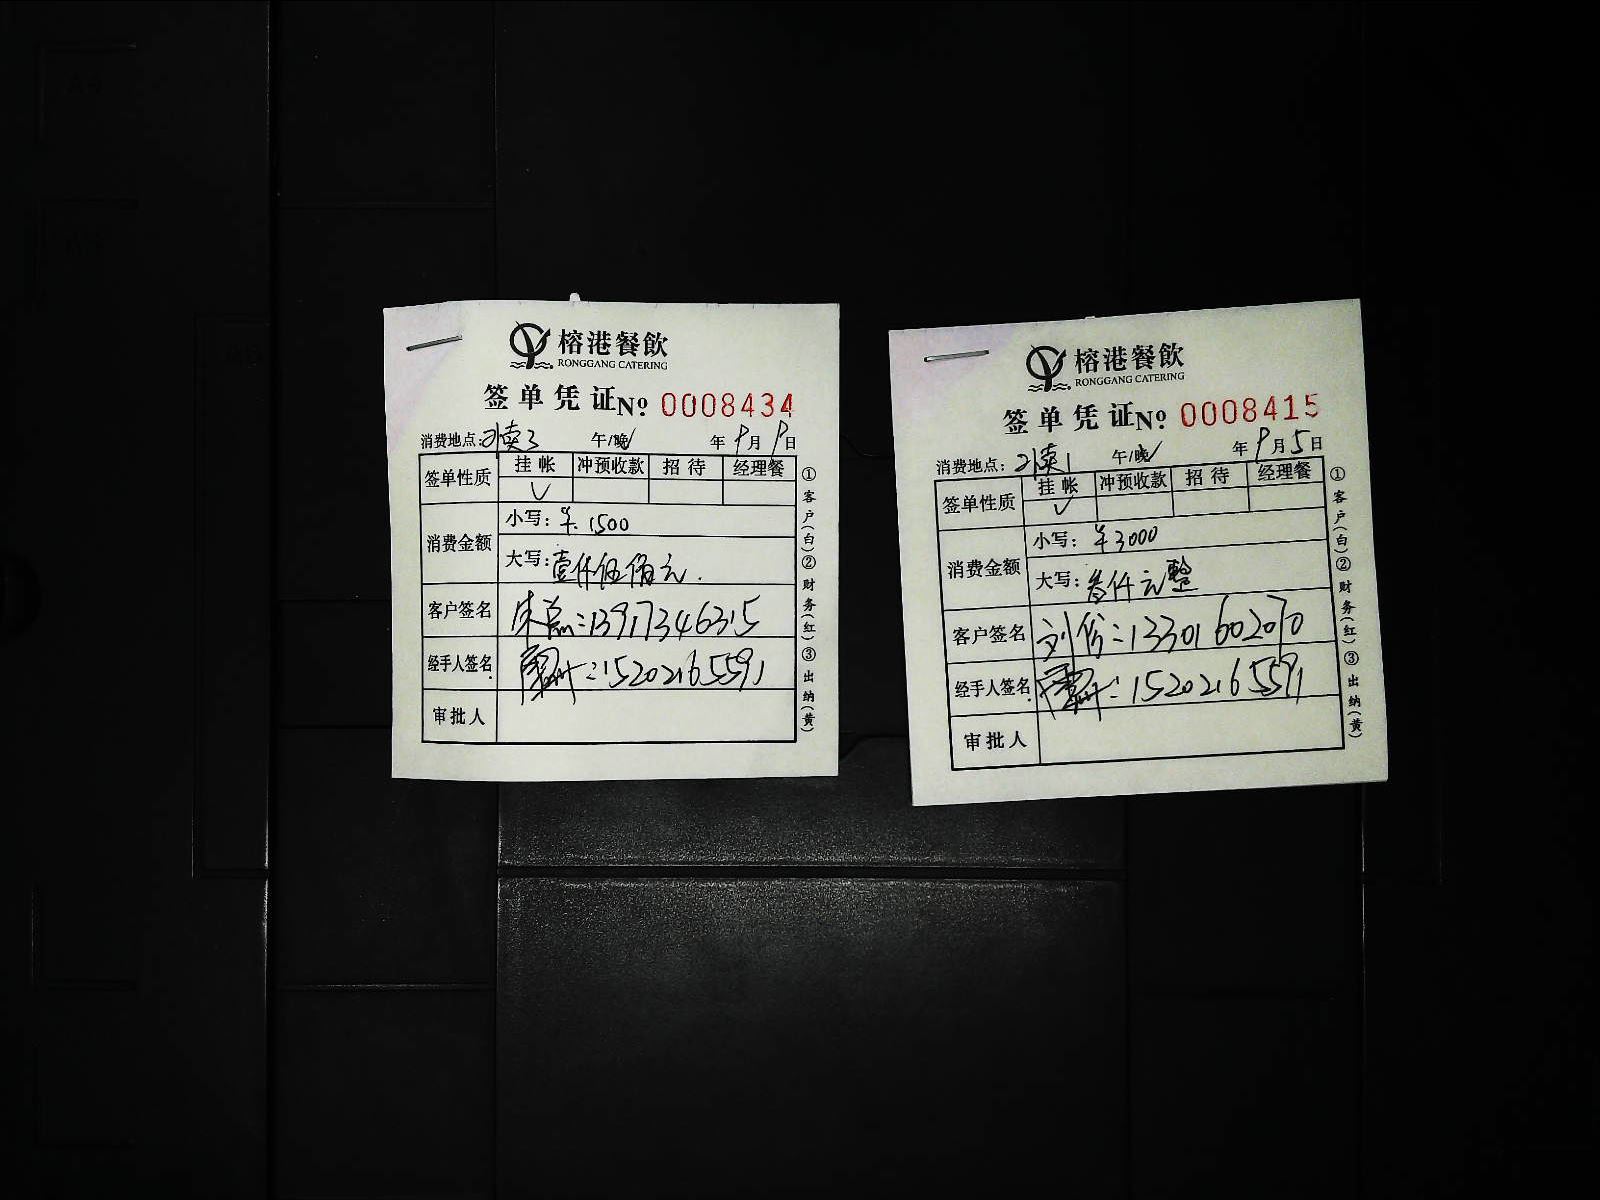 榕港餐飲
RONGGANG CATERING
签单凭证 No 0008434
消费地点: 午/晚✓ 年 9月 9日
签单性质 挂帐 冲预收款 招待 经理餐
✓
消费金额 小写: ¥.1500
大写: 壹仟伍佰元.
客户签名 朱总:13917346315
经手人签名 :15202165591
审批人
①客户(白)②财务(红)③出纳(黄)
榕港餐飲
RONGGANG CATERING
签单凭证 No 0008415
消费地点: 午/晚✓ 年 9月 5日
签单性质 挂帐 冲预收款 招待 经理餐
✓
消费金额 小写: ¥3000
大写: 叁仟元整
客户签名 刘:13301602070
经手人签名 :15202165591
审批人
①客户(白)②财务(红)③出纳(黄)